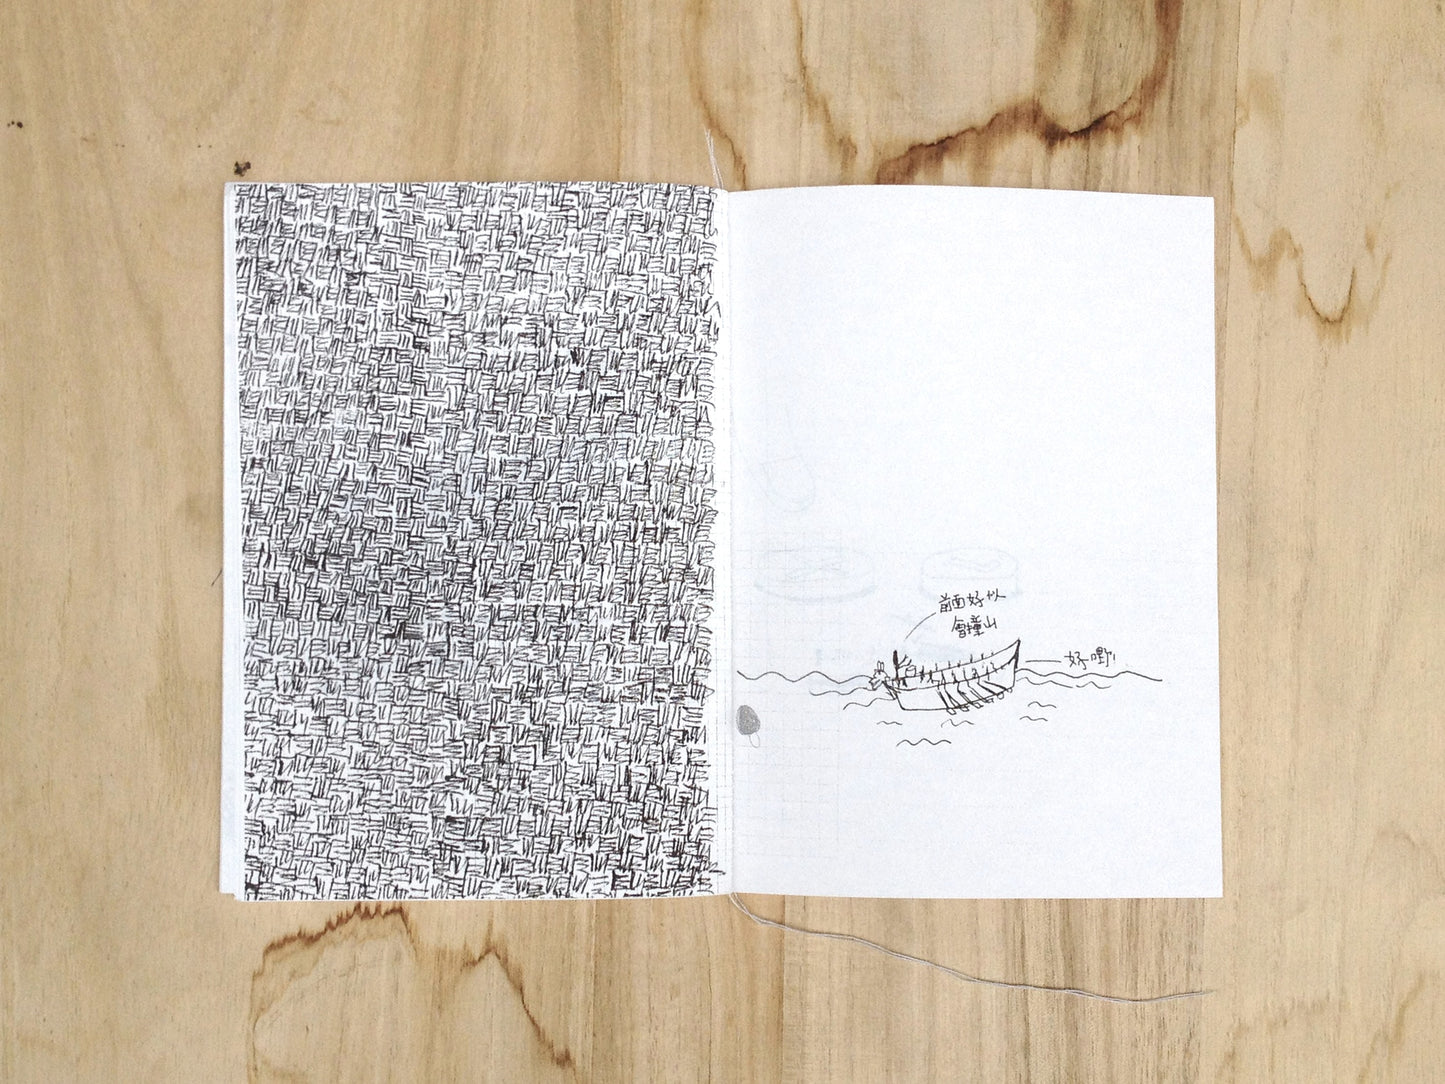 前面好似
會撞山
好嘢!